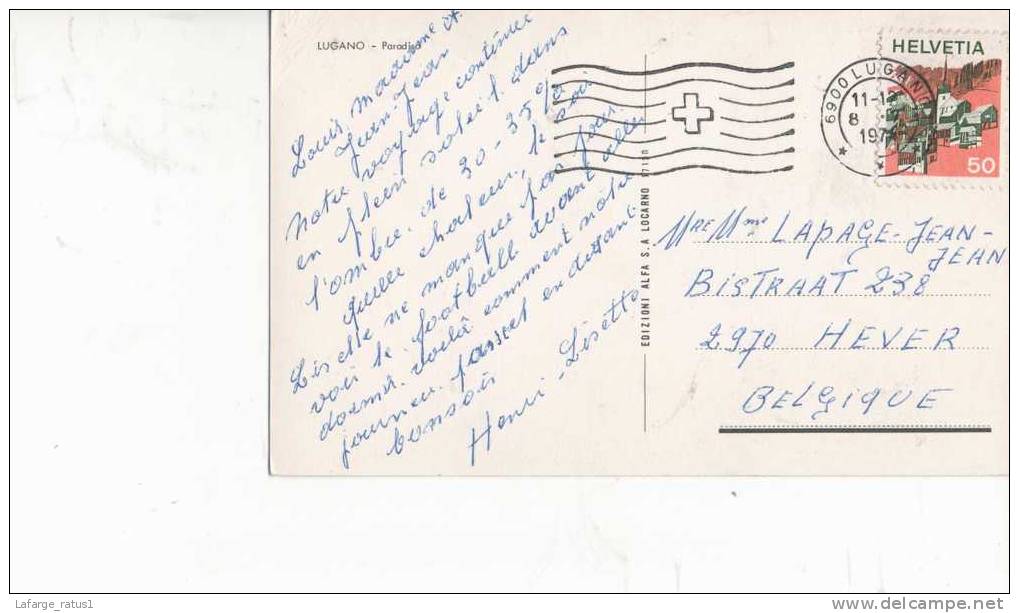 LUGANO - Paradiso
Louis, madame et
Jean-Jean
notre voyage continue
en plein soleil dans
l'ombre de 30-35%
quelle chaleur, le soir
Lisette ne manque pas pour
voir le football avant aller
dormir. voilà comment notre
journeu passet en disant
bonsoir
Henri - Lisette
EDIZIONI ALFA S.A LOCARNO
6900 LUGANO
11-1
8
197
HELVETIA
50
Mre Mme LAPAGE-JEAN-
JEAN
BISTRAAT 238
2970 HEVER
BELGIQUE
Lafarge_ratus1
delcampe.net